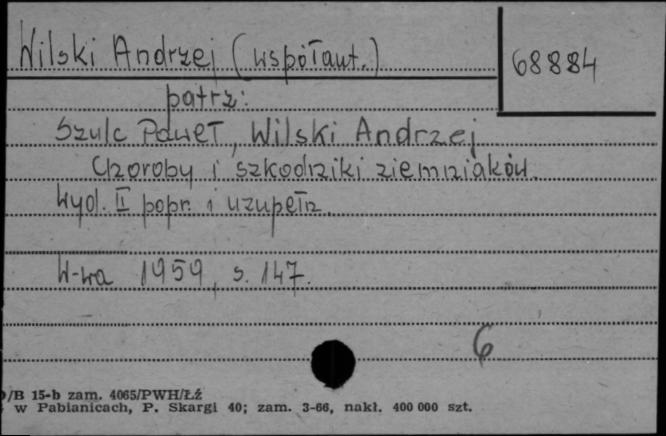 Wilski Andrzej (współaut.)
68884
patrz:
Szulc Paweł, Wilski Andrzej
Choroby i szkodniki ziemniaków.
Wyd. II popr. i uzupełn.
W-wa 1959, s. 147.
6
/B 15-b zam. 4065/PWH/ŁŹ
w Pabianicach, P. Skargi 40; zam. 3-66, nakł. 400 000 szt.